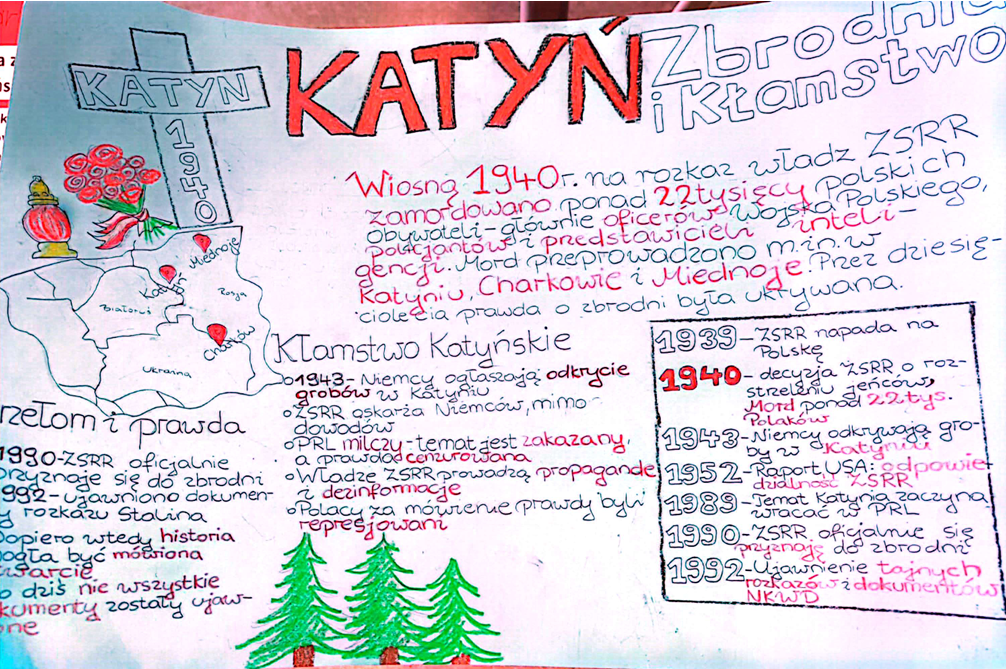 KATYN
1940
KATYŃ
Zbrodnia
i Kłamstwo
Wiosną 1940r. na rozkaz władz ZSRR
zamordowano ponad 22tysięcy polskich
Obywateli-głównie oficerów Wojska Polskiego,
policjantów i przedstawicieli inteli-
gencji. Mord przeprowadzono m.in. w
Katyniu, Charkowie i Miednoje. Przez dziesię-
ciolecia prawda o zbrodni była ukrywana.
Miednoje
Katyń
Rosja
Białoruś
Charków
Ukraina
Kłamstwo Katyńskie
1943- Niemcy ogłaszają odkrycie
grobów w Katyniu
ZSRR oskarża Niemców, mimo
dowodów
PRL milczy-temat jest zakazany,
a prawda cenzurowana
Władze ZSRR prowadzą propagandę
i dezinformacje
Polacy za mówienie prawdy byli
represjowani
rzełom i prawda
1990-ZSRR oficjalnie
przyznaje się do zbrodni
1992- ujawniono dokumen-
y rozkazu Stalina
opiero wtedy historia
ogła być mówiona
twarcie
o dziś nie wszystkie
kumenty zostały ujaw-
one
1939-ZSRR napada na
Polskę
1940- decyzja ZSRR o roz-
strzelaniu jeńców,
Mord ponad 22tys.
Polaków
1943-Niemcy odkrywają gro-
by w Katyniu
1952-Raport USA: odpowie-
dzialność ZSRR
1989-Temat Katynia zaczyna
wracać w PRL
1990-ZSRR oficjalnie się
przyznaje do zbrodni
1992-Ujawnienie tajnych
rozkazów i dokumentów
NKWD